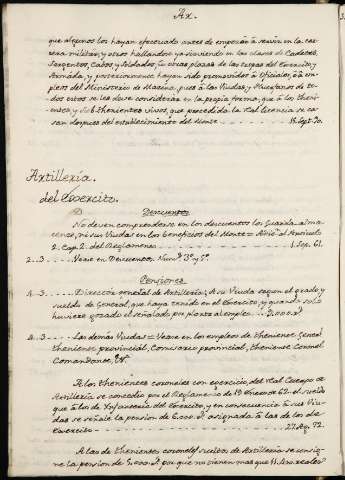 Ar.
que algunos los hayan efectuado antes de empezar à servir en la car-
rera militar, y otros hallandose ya sirviendo en las clases de Cadetes,
Sargentos, Cabos y Soldados, ù otras plazas de las tropas del Exercito y
Armada, y posteriormente hayan sido promovidos à Oficiales, ò à em-
pleos del Ministerio de Marina, pues à las Viudas y Huerfanos de to-
dos estos se les deve considerar en la propia forma, que à los theni-
entes y Sub-thenientes vivos, que precedida la Real licencia se ca-
san despues del establecimiento del Monte
Artilleria.
del Exercito.
Descuentos
No deven comprenderse en los descuentos los Guarda-alma-
cenes, ni sus Viudas en los beneficios del Monte = Adic.l al Articulo
2. Cap. 2. del Reglamento 1. Sep. 61.
2..3 Vease en Descuentos Num.s 3.º y 5.º
Pensiones
4..3 Director General de Artilleria; A su Viuda segun el grado y
sueldo de General, que haya tenido en el Exercito, y quando solo
huviere gozado el señalado por planta al empleo
4..3 Las demás Viudas = Vease en los empleos de theniente General
theniente provincial, Comisario provincial, theniente Coronel
Comandante, &.
A los thenientes coroneles con exercicio, del Real Cuerpo de
Artilleria se concedio por el Reglamento de 19 Enero de 62. el sueldo
que à los de Ynfanteria del Exercito, y en consecuencia à sus Viu-
das se señale la pension de 6.000 rs. asignada à las de los de
Exercito 27. Ag. 72.
A las de thenientes coroneles sueltos de Artilleria se consig-
ne la pension de 5.000 rs. por que no tienen mas que